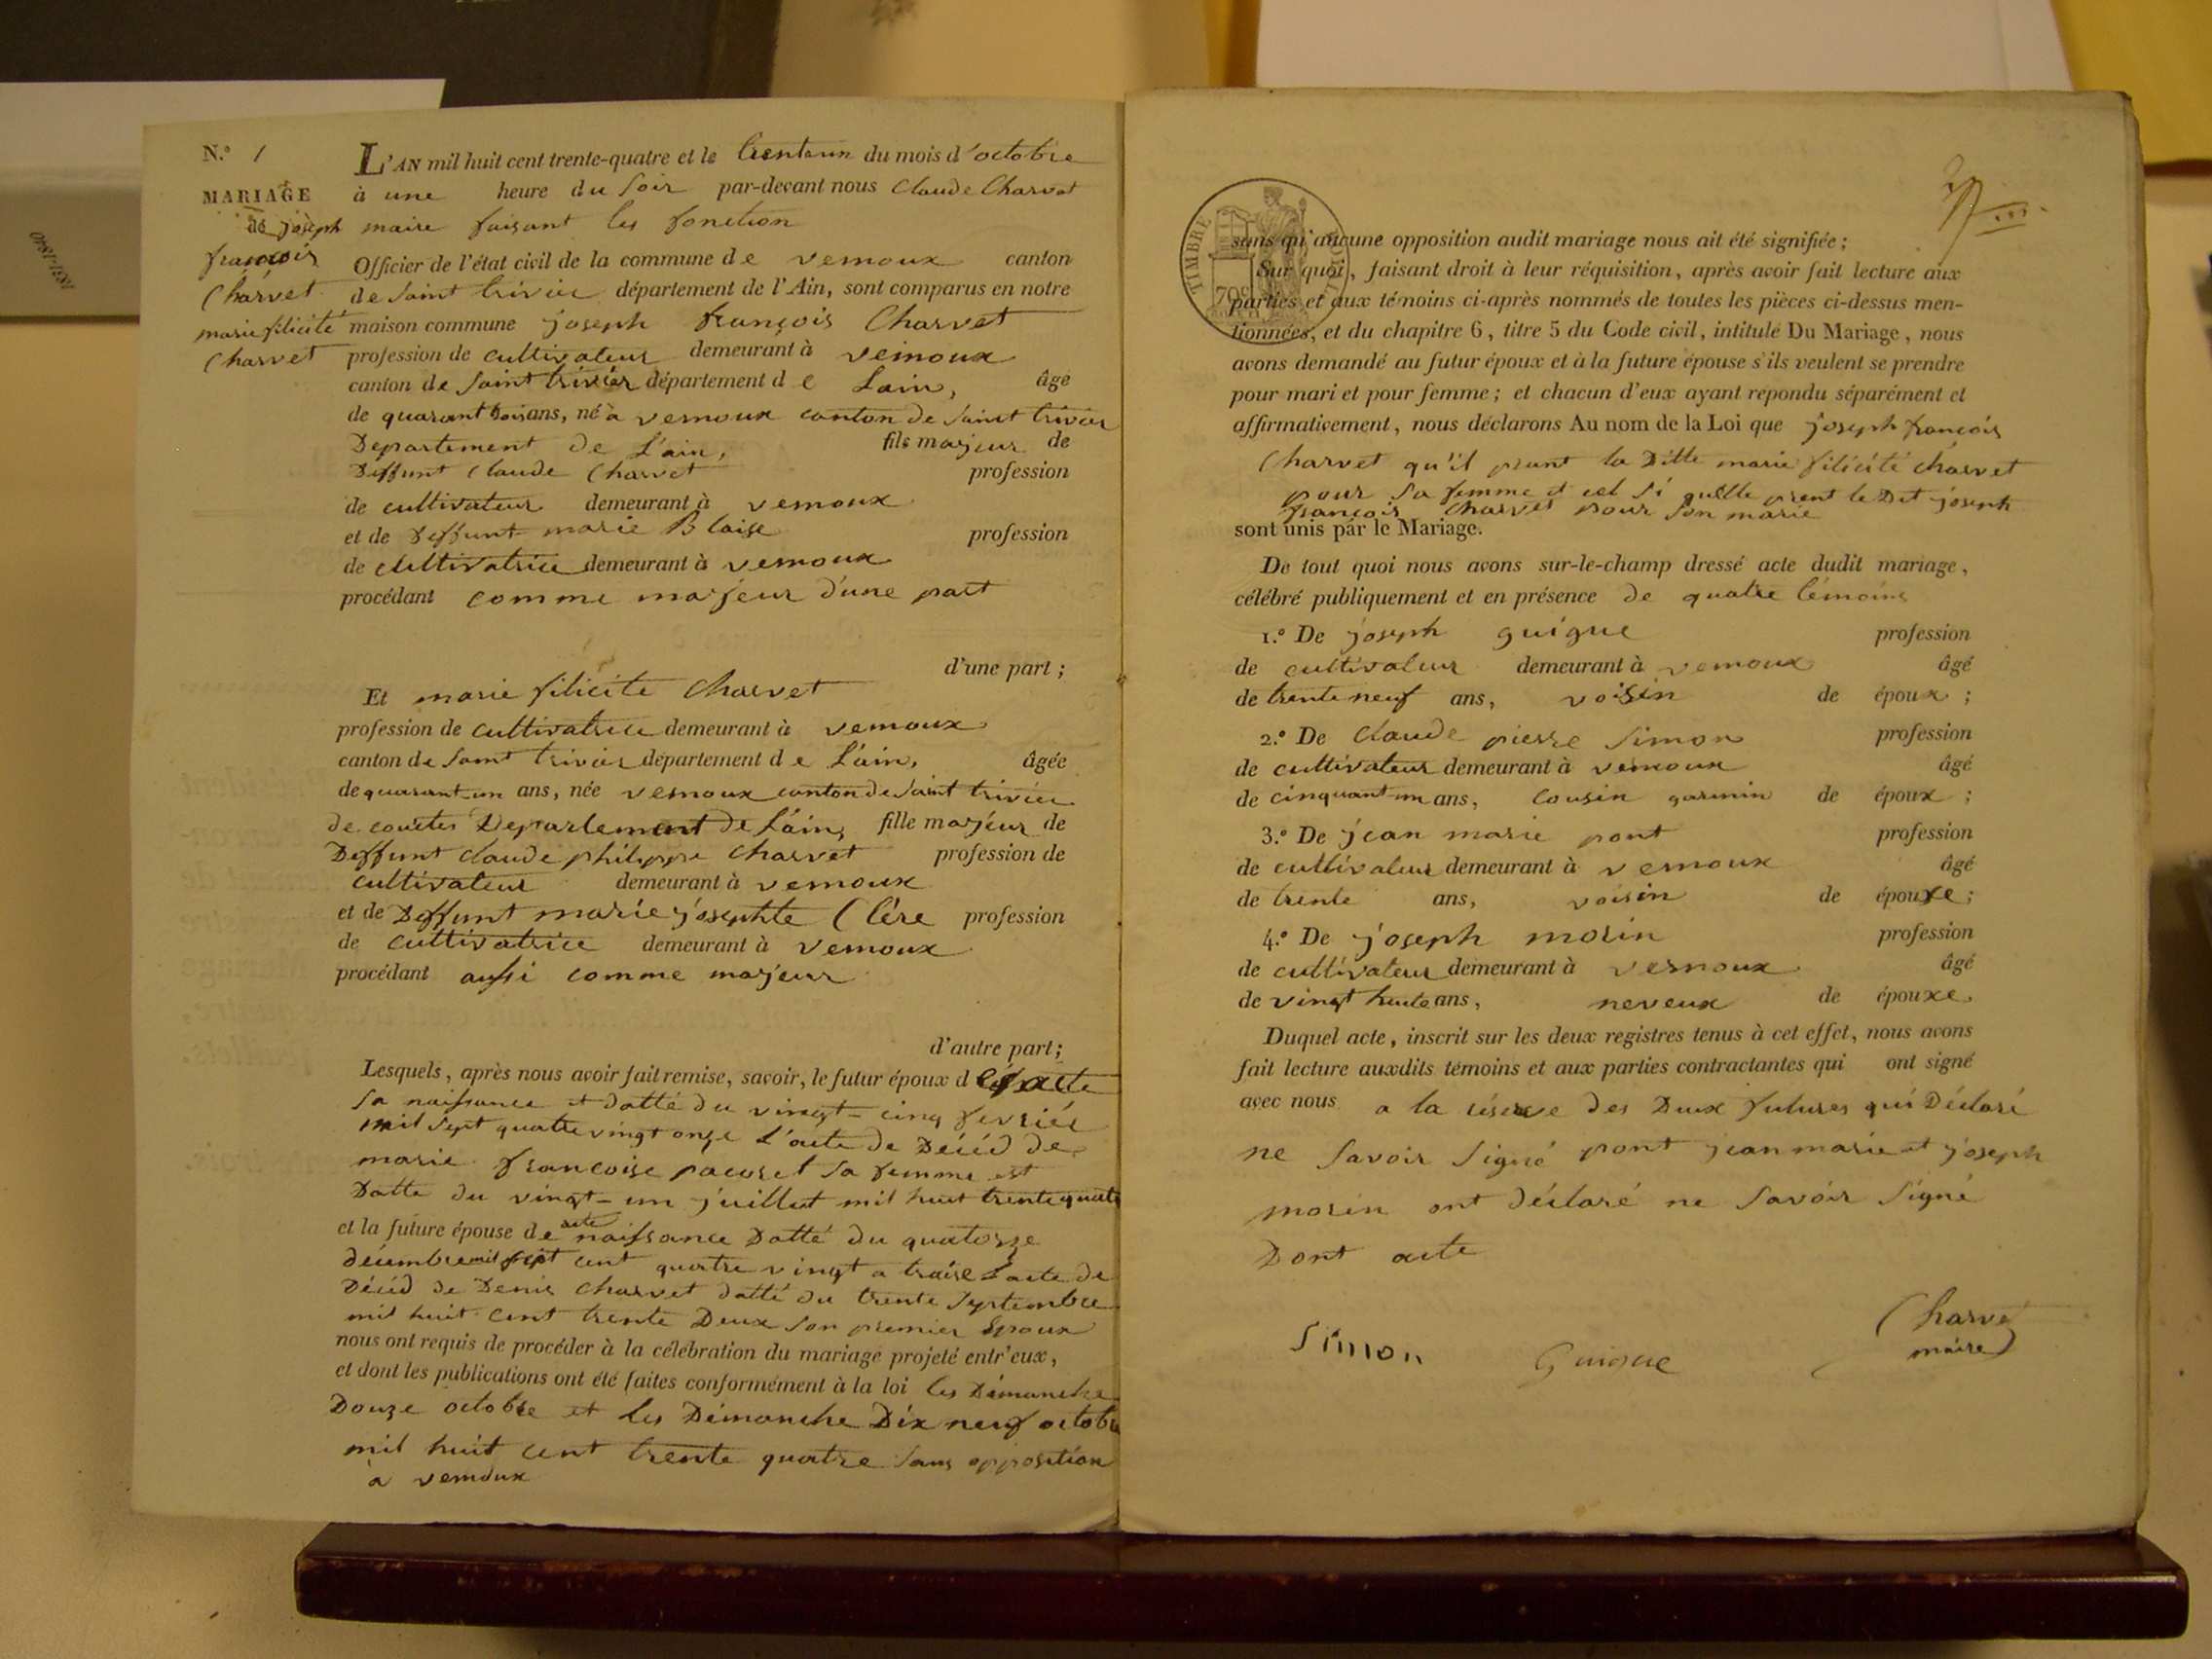 N.º 1
MARIAGE
de joseph
françois
Charvet
marie filicité
Charvet
L'AN mil huit cent trente-quatre et le trenteun du mois d'octobre
à une heure du soir par-devant nous Claude Charvet
maire faisant les fonction
Officier de l'état civil de la commune de vernoux canton
de saint trivier département de l'Ain, sont comparus en notre
maison commune joseph françois Charvet
profession de cultivateur demeurant à vernoux
canton de saint trivier département de Lain, âgé
de quarant trois ans, né à vernoux canton de saint trivier
Departement de L'ain, fils majeur de
Deffunt Claude Charvet profession
de cultivateur demeurant à vernoux
et de deffunt marie Blaise profession
de cultivatrice demeurant à vernoux
procédant comme majeur d'une part
d'une part ;
Et marie filicite Charvet
profession de cultivatrice demeurant à vernoux
canton de saint trivier département de L'ain, âgée
de quarant-un ans, née vernoux canton de saint trivier
de courtes Departement de L'ain, fille majeur de
Deffunt claude philippe Charvet profession de
cultivateur demeurant à vernoux
et de Deffunt marie josephte Clére profession
de cultivatrice demeurant à vernoux
procédant aussi comme majeur
d'autre part ;
Lesquels, après nous avoir fait remise, savoir, le futur époux d acte
sa naissance et datté du vingt-cinq fevriér
mil sept quatre vingt onze L'acte de Décéd de
marie francoise pacoret sa femme est
Datte du vingt-un juillet mil huit trente quatre
et la future épouse de acte naissance Datté du quatorze
décembre mil sept cent quatre vingt a traise L'acte de
Décéd de Denis Charvet datté du trente septembre
mil huit cent trente Deux son premier Epoux
nous ont requis de procéder à la célébration du mariage projeté entr'eux,
et dont les publications ont été faites conformément à la loi les Dimanche
Douze octobre et les Dimanche Dix neuf octobre
mil huit cent trente quatre sans opposition
à vernoux
TIMBRE
70
sans qu'aucune opposition audit mariage nous ait été signifiée ;
Sur quoi, faisant droit à leur réquisition, après avoir fait lecture aux
parties et aux témoins ci-après nommés de toutes les pièces ci-dessus men-
tionnées, et du chapitre 6, titre 5 du Code civil, intitulé Du Mariage, nous
avons demandé au futur époux et à la future épouse s'ils veulent se prendre
pour mari et pour femme ; et chacun d'eux ayant répondu séparément et
affirmativement, nous déclarons Au nom de la Loi que joseph françois
Charvet qu'il prant la Ditte marie filicité charvet
pour sa femme et cel si quelle prent le Dit joseph
françois Charvet pour son marie
sont unis par le Mariage.
De tout quoi nous avons sur-le-champ dressé acte dudit mariage,
célébré publiquement et en présence de quatre témoins
1.º De joseph guigue profession
de cultivateur demeurant à vernoux âgé
de trente neuf ans, voisin de époux ;
2.º De Claude pierre Simon profession
de cultivateur demeurant à vernoux âgé
de cinquant un ans, cousin garmin de époux ;
3.º De jean marie pont profession
de cultivateur demeurant à vernoux âgé
de trente ans, voisin de épouxe ;
4.º De joseph morin profession
de cultivateur demeurant à vernoux âgé
de vingt huite ans, neveux de épouxe
Duquel acte, inscrit sur les deux registres tenus à cet effet, nous avons
fait lecture auxdits témoins et aux parties contractantes qui ont signé
avec nous a la réserve des Deux futures qui Déclaré
ne savoir signé pont jean marie et joseph
morin ont déclaré ne savoir signé
Dont acte
Simon Guigue Charvet
maire